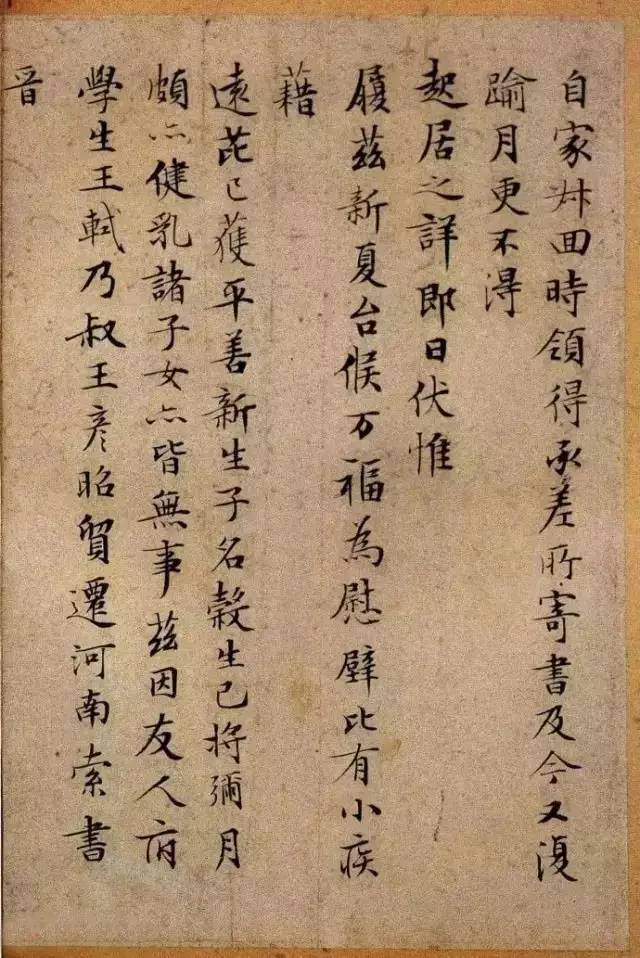 自家舛回時領得承差所寄書及今又復
踰月更不得
起居之詳即日伏惟
履茲新夏台候万福為慰璧比有小疾
藉
遠芘已獲平善新生子名穀生已將彌月
頗亦健乳諸子女亦皆無事茲因友人府
學生王軾乃叔王彦昭貿遷河南索書
晋